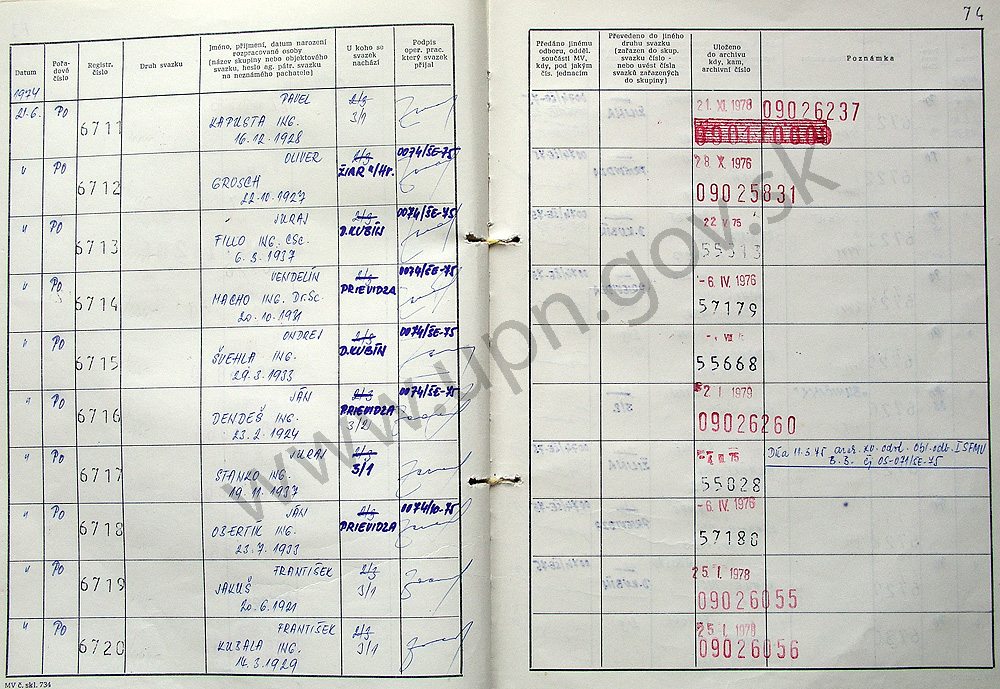 74
Datum
Pořa-
dové
číslo
Registr.
číslo
Druh svazku
Jméno, příjmení, datum narození
rozpracované osoby
(název skupiny nebo objektového
svazku, heslo ag. pátr. svazku
na neznámého pachatele)
U koho se
svazek
nachází
Podpis
oper. prac.
který svazek
přijal
Předáno jinému
odboru, odděl.
součásti MV,
kdy, pod jakým
čís. jednacím
Převedeno do jiného
druhu svazku
(zařazen do skup.
svazku číslo -
nebo uvést čísla
svazků zařazených
do skupiny)
Uloženo
do archivu
kdy, kam,
archivní číslo
Poznámka
1974
21.6. Po 6711
PAVEL
KAPUSTA ING.
16.12.1928
2/3
3/1
21. XI. 1978 09026237
" Po 6712
OLIVER
GROSCH
22.10.1927
2/3
ŽIAR n/Hr.
0074/ŠE-75
28 X 1976
09025831
" Po 6713
JURAJ
FILLO ING. CSc.
6.3.1937
2/3
D.KUBÍN
0074/ŠE-75
22 V 75
55313
" Po 6714
VENDELÍN
MACHO ING. Dr.Sc.
20.10.1931
2/3
PRIEVIDZA
0074/ŠE-75
-6. IV. 1976
57179
" Po 6715
ONDREJ
ŠVEHLA ING.
29.3.1933
2/3
D.KUBÍN
0074/ŠE-75
55668
" Po 6716
JÁN
DENDEŠ ING.
23.2.1924
2/3
PRIEVIDZA
3/2
0074/ŠE-75
2 I 1979
09026260
" Po 6717
JURAJ
STANKO ING.
19.11.1937
2/3
3/1
75
55028
Dňa 11.3.75
" Po 6718
JÁN
OBERTÍK ING.
23.7.1933
2/3
PRIEVIDZA
0074/10-75
-6. IV. 1976
57180
" Po 6719
FRANTIŠEK
JAKUŠ
20.6.1921
2/3
3/1
25. I. 1978
09026055
" Po 6720
FRANTIŠEK
KUBALA ING.
14.3.1929
2/3
3/1
25. I. 1978
09026056
MV č. skl. 734
www.upn.gov.sk